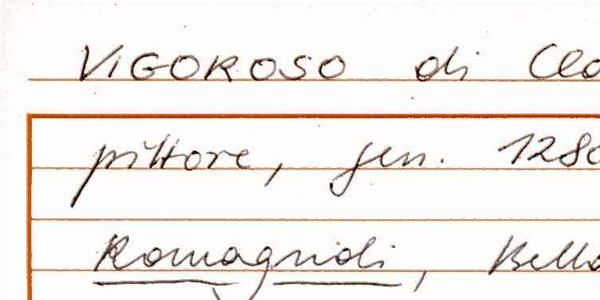 VIGOROSO di Cla
pittore, gen. 1280
Romagnoli, Bella